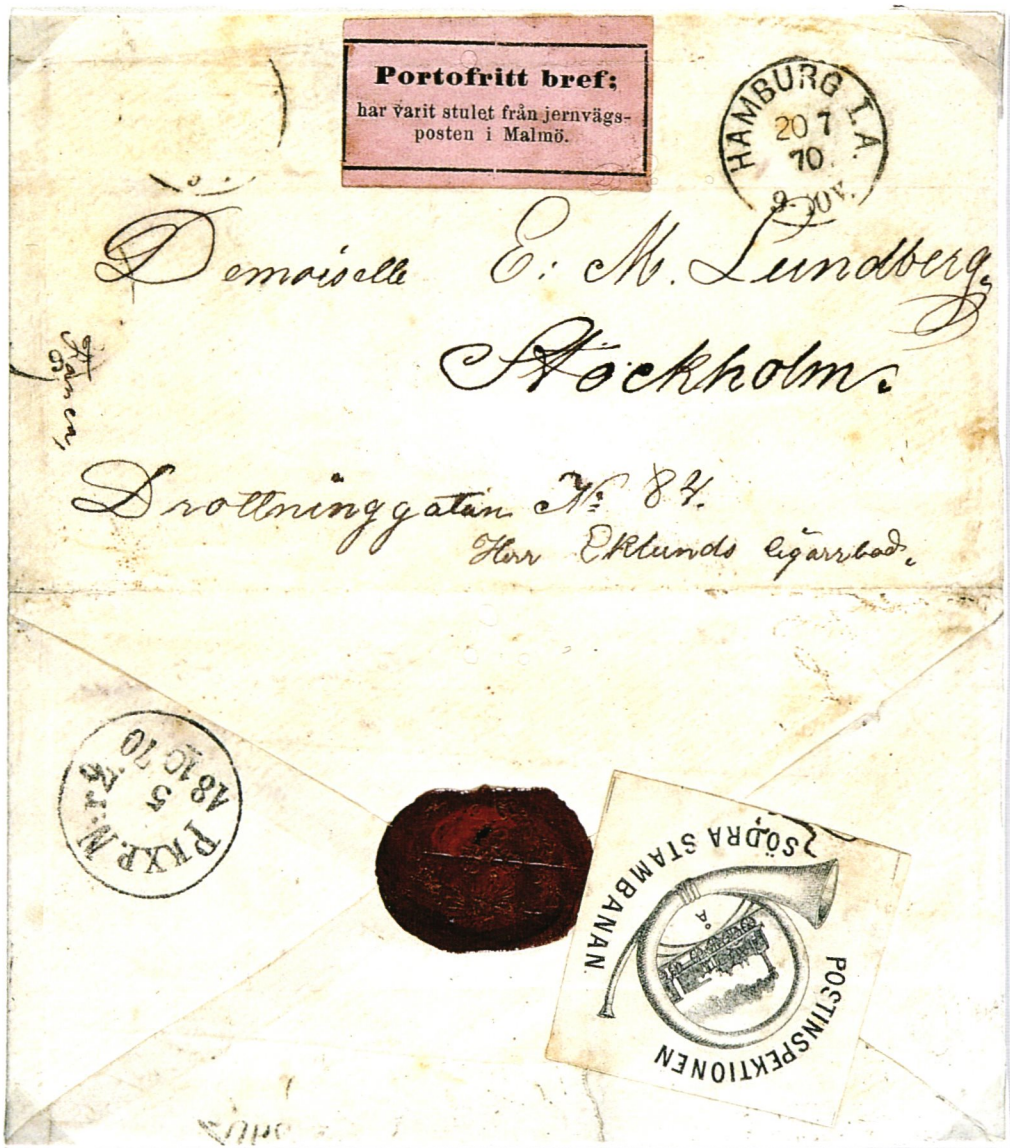 Portofritt bref;
har varit stulet från jernvägs-
posten i Malmö.
HAMBURG I. A.
20 7
70
Demoiselle E: M. Lundberg.
Stockholm.
Drottninggatan No: 84.
Herr Eklunds Cigarrbod.
PKXP. N:r
5
18 10 70
POSTINSPEKTIONEN
Å
SÖDRA STAMBANAN.